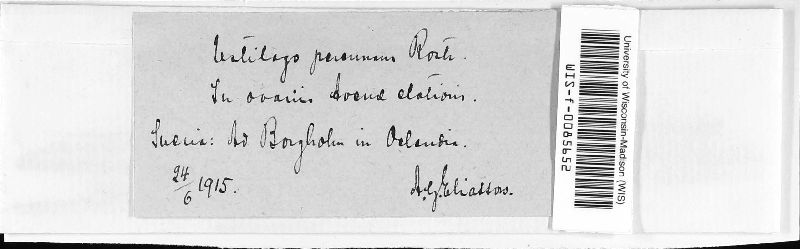 Ustilago perennans Rostr.
In ovariis Avenæ elatioris.
Suecia: Ad Borgholm in Oelandia.
24/6 1915.
A.G. Eliasson.
University of Wisconsin-Madison (WIS)
WIS-f-0085652